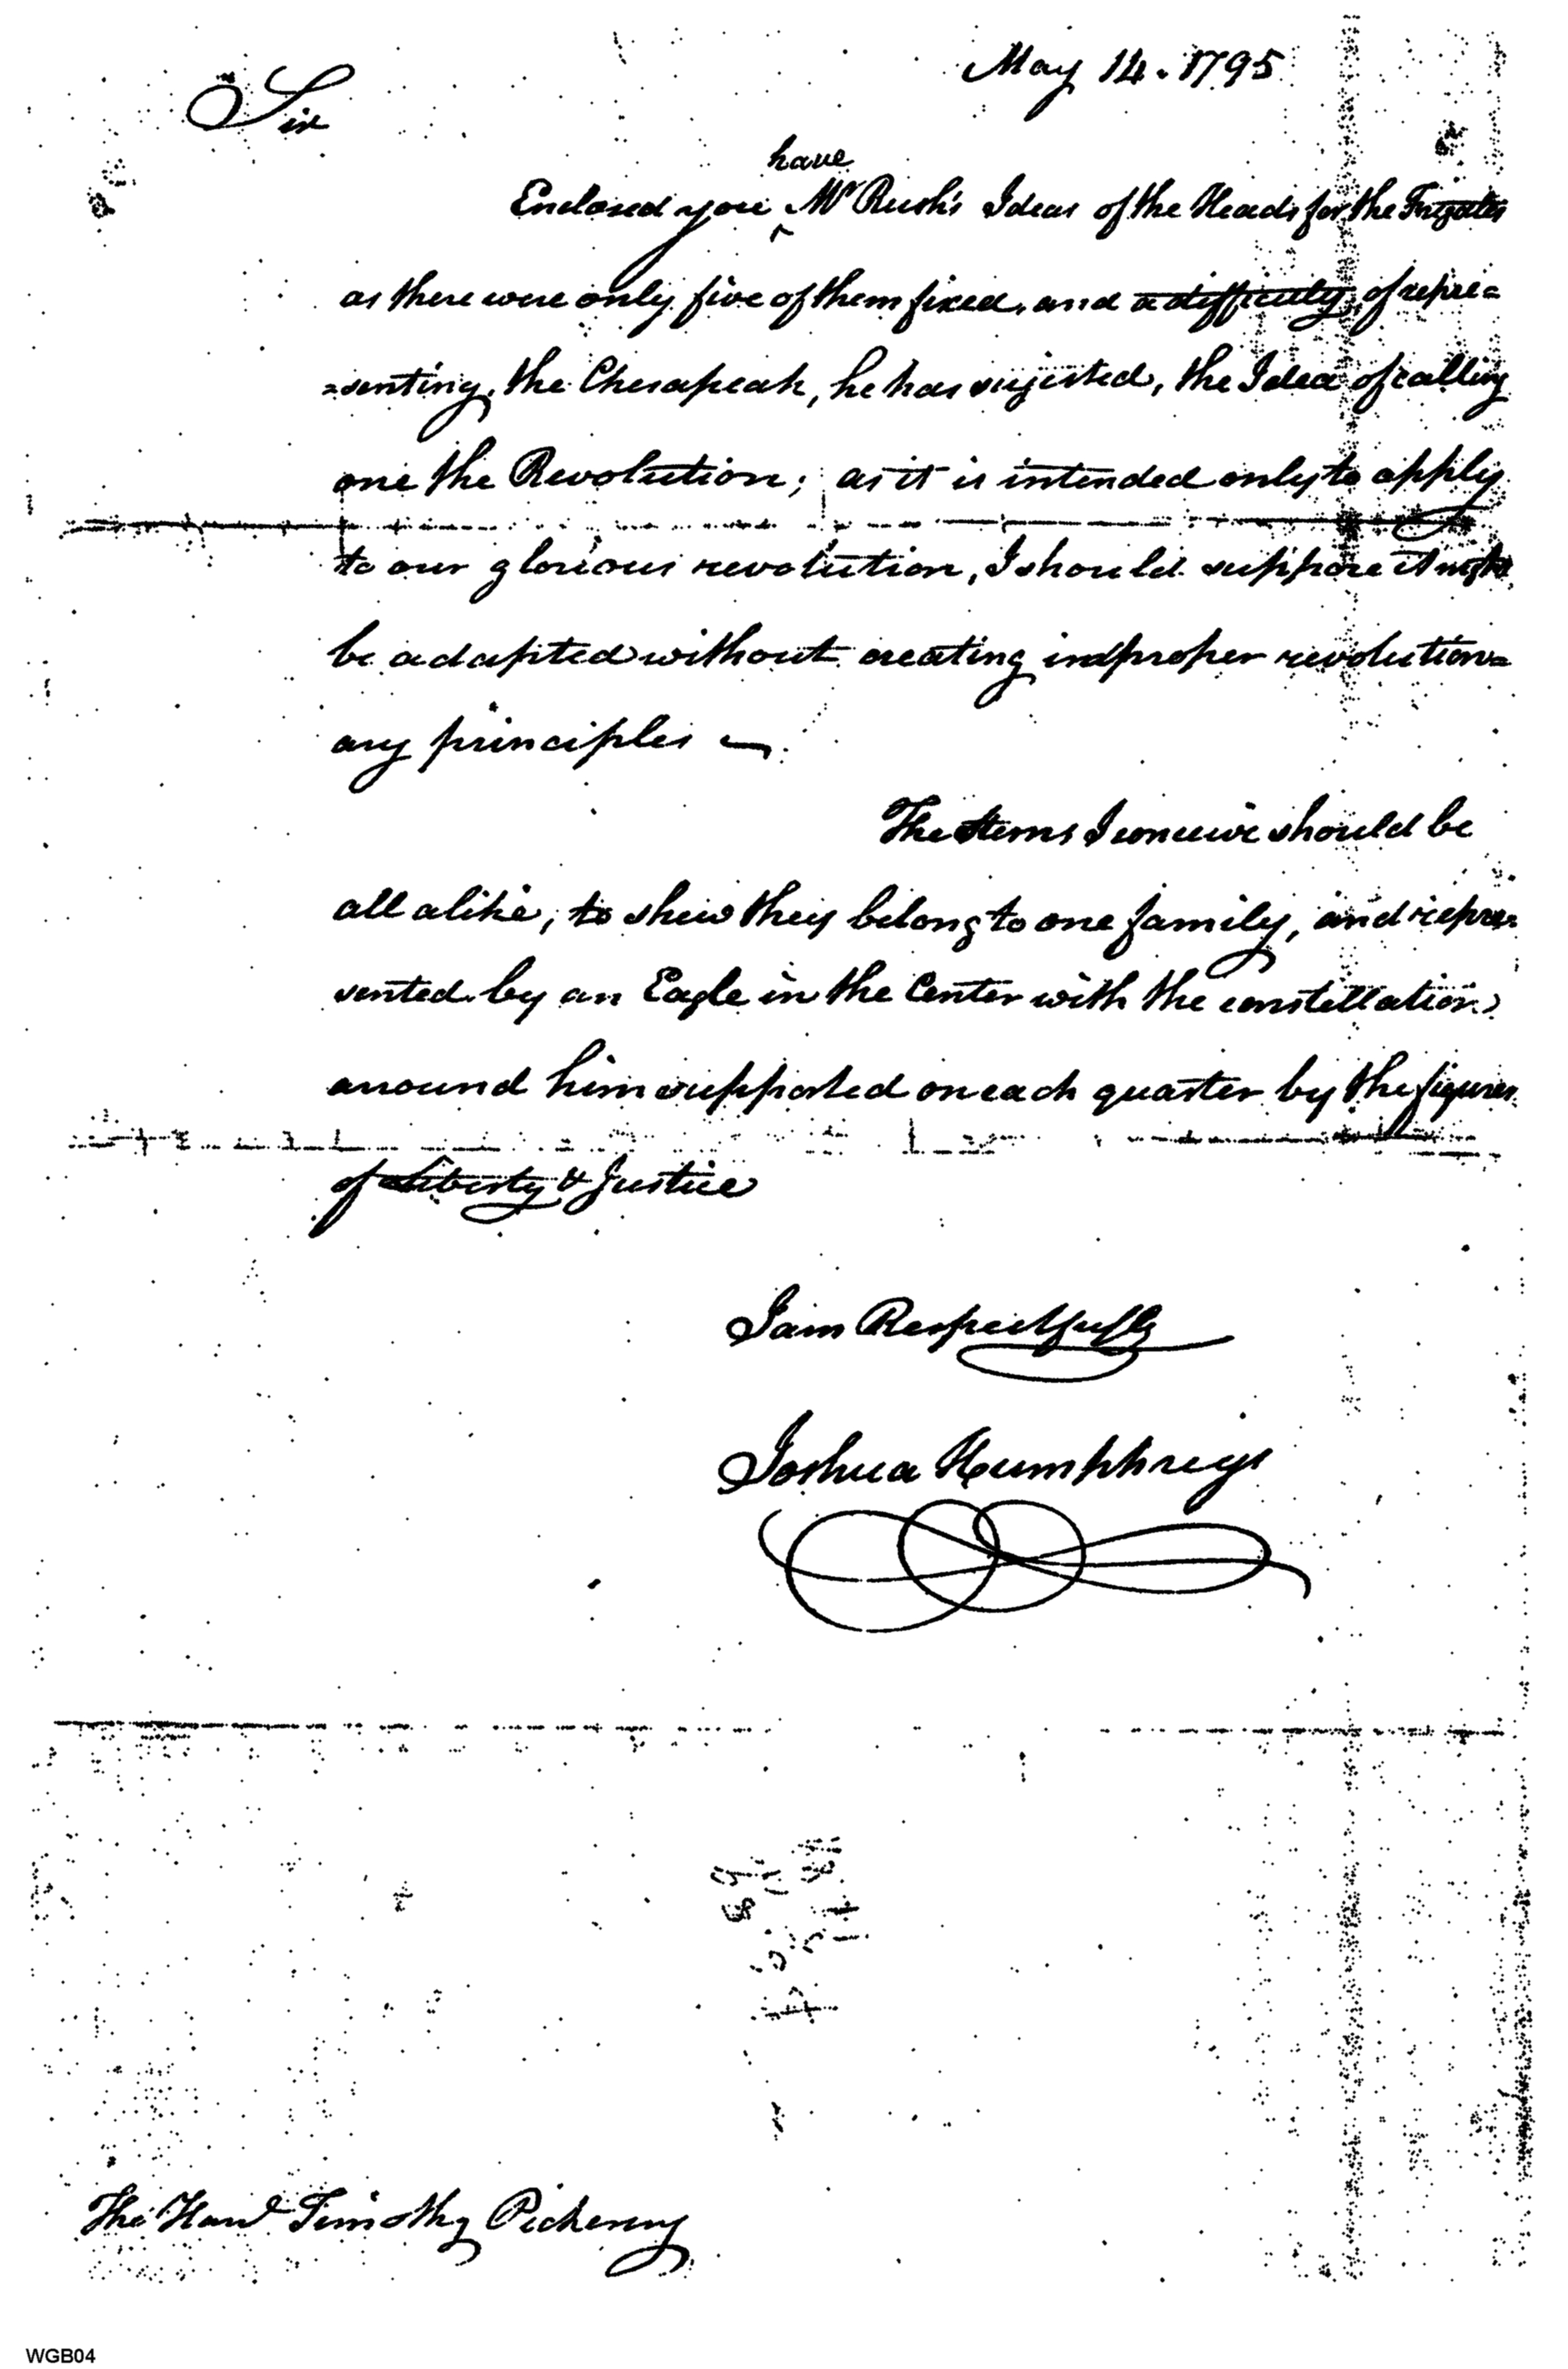 May 14. 1795
Sir
have
Enclosed you ^ Mr Rush's Ideas of the Heads for the Frigates
as there were only five of them fixed, and a difficulty of repre=
=senting, the Chesapeak, he has sugjested, the Idea of calling
one the Revolution; as it is intended only to apply
to our glorious revolution, I should suppose it might
be adapted without creating improper revolution=
ary principles
The Sterns I conceive should be
all alike, to shew they belong to one family, and repre=
sented by an Eagle in the Center with the constellation
around him supported on each quarter by the figures
of Liberty & Justice
I am Respectfully
Joshua Humphreys
The Hond Timothy Pickering
WGB04